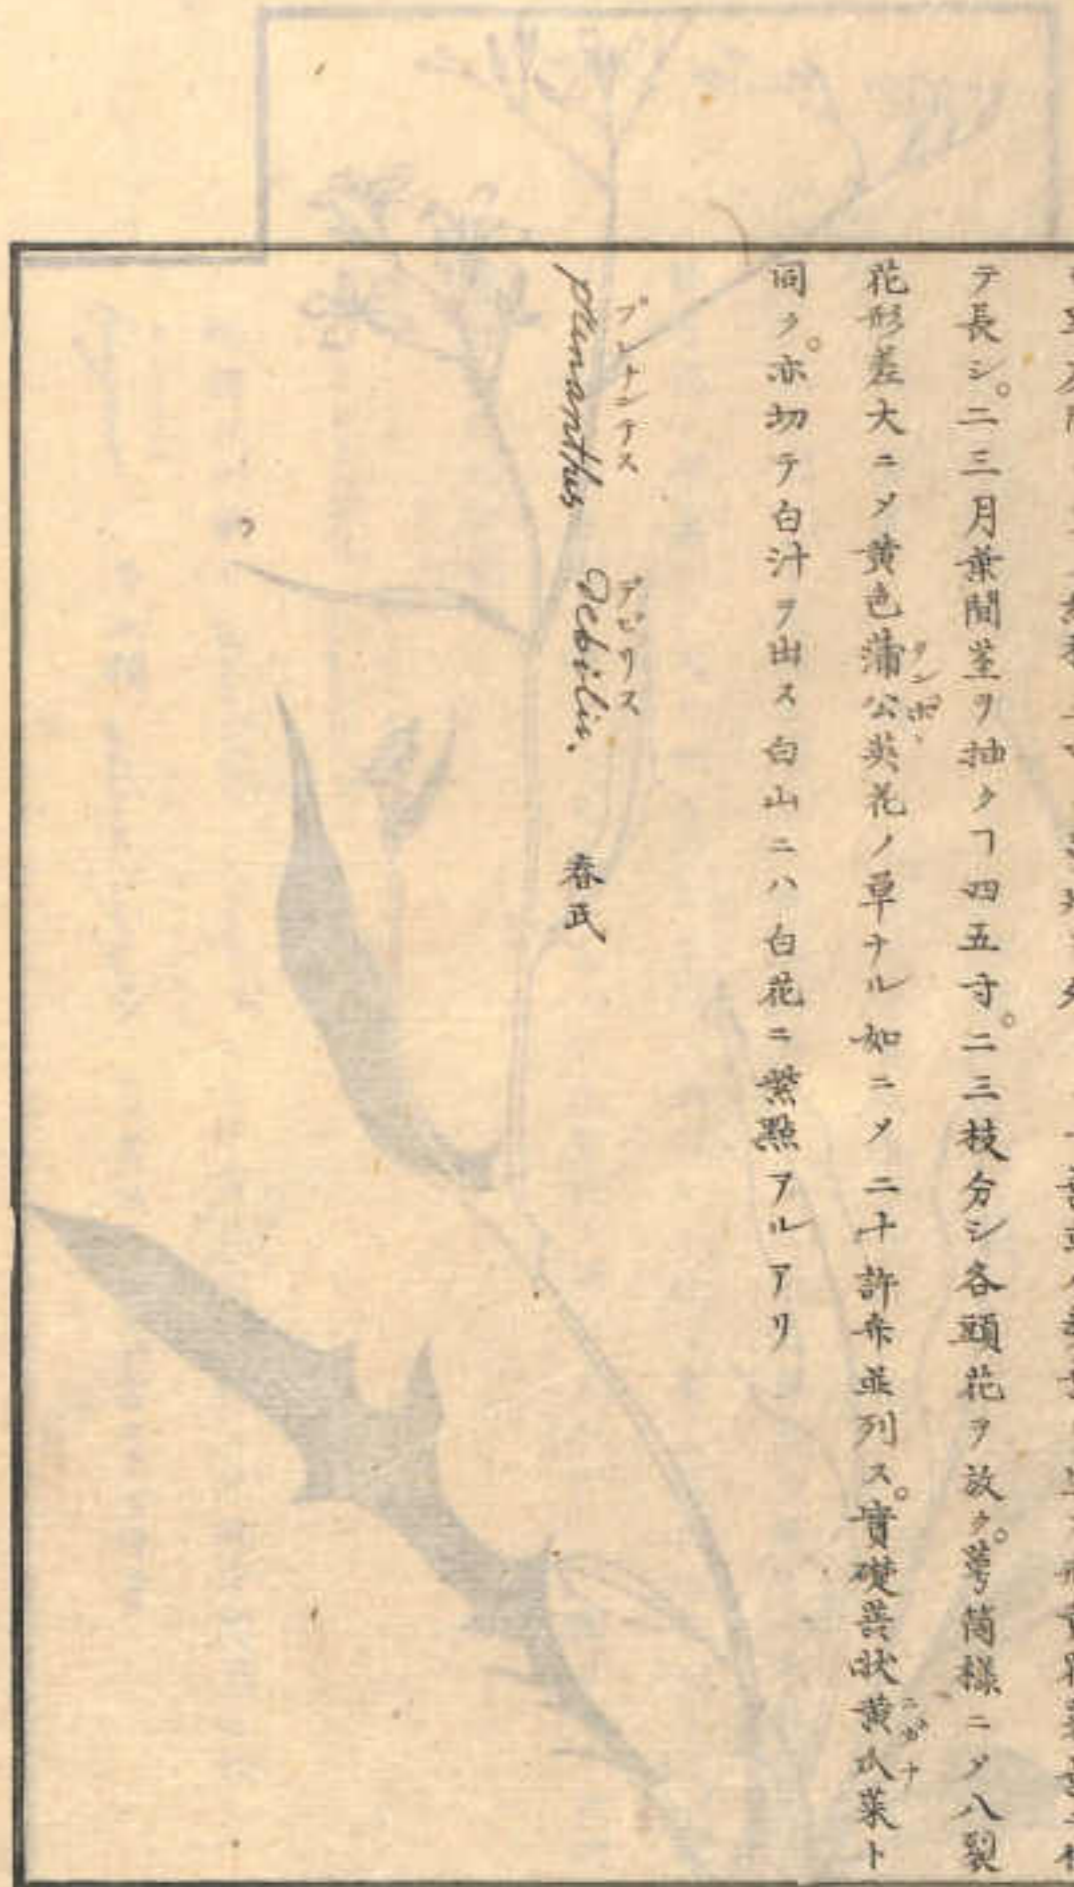 テ長シ。二三月葉間茎ヲ抽クヿ四五寸。二三枝分シ各頭花ヲ放ク。萼筒様ニメ八裂
花形差大ニメ黄色蒲公英花ノ単ナル如ニメ二十許弁並列ス。實礎芸状黄瓜菜ト
タンポヽ
ニガナ
同ク。亦切テ白汁ヲ出ス白山ニハ白花ニ紫點アルアリ
プレナンテス デビリス
prenanthus debilis. 春氏